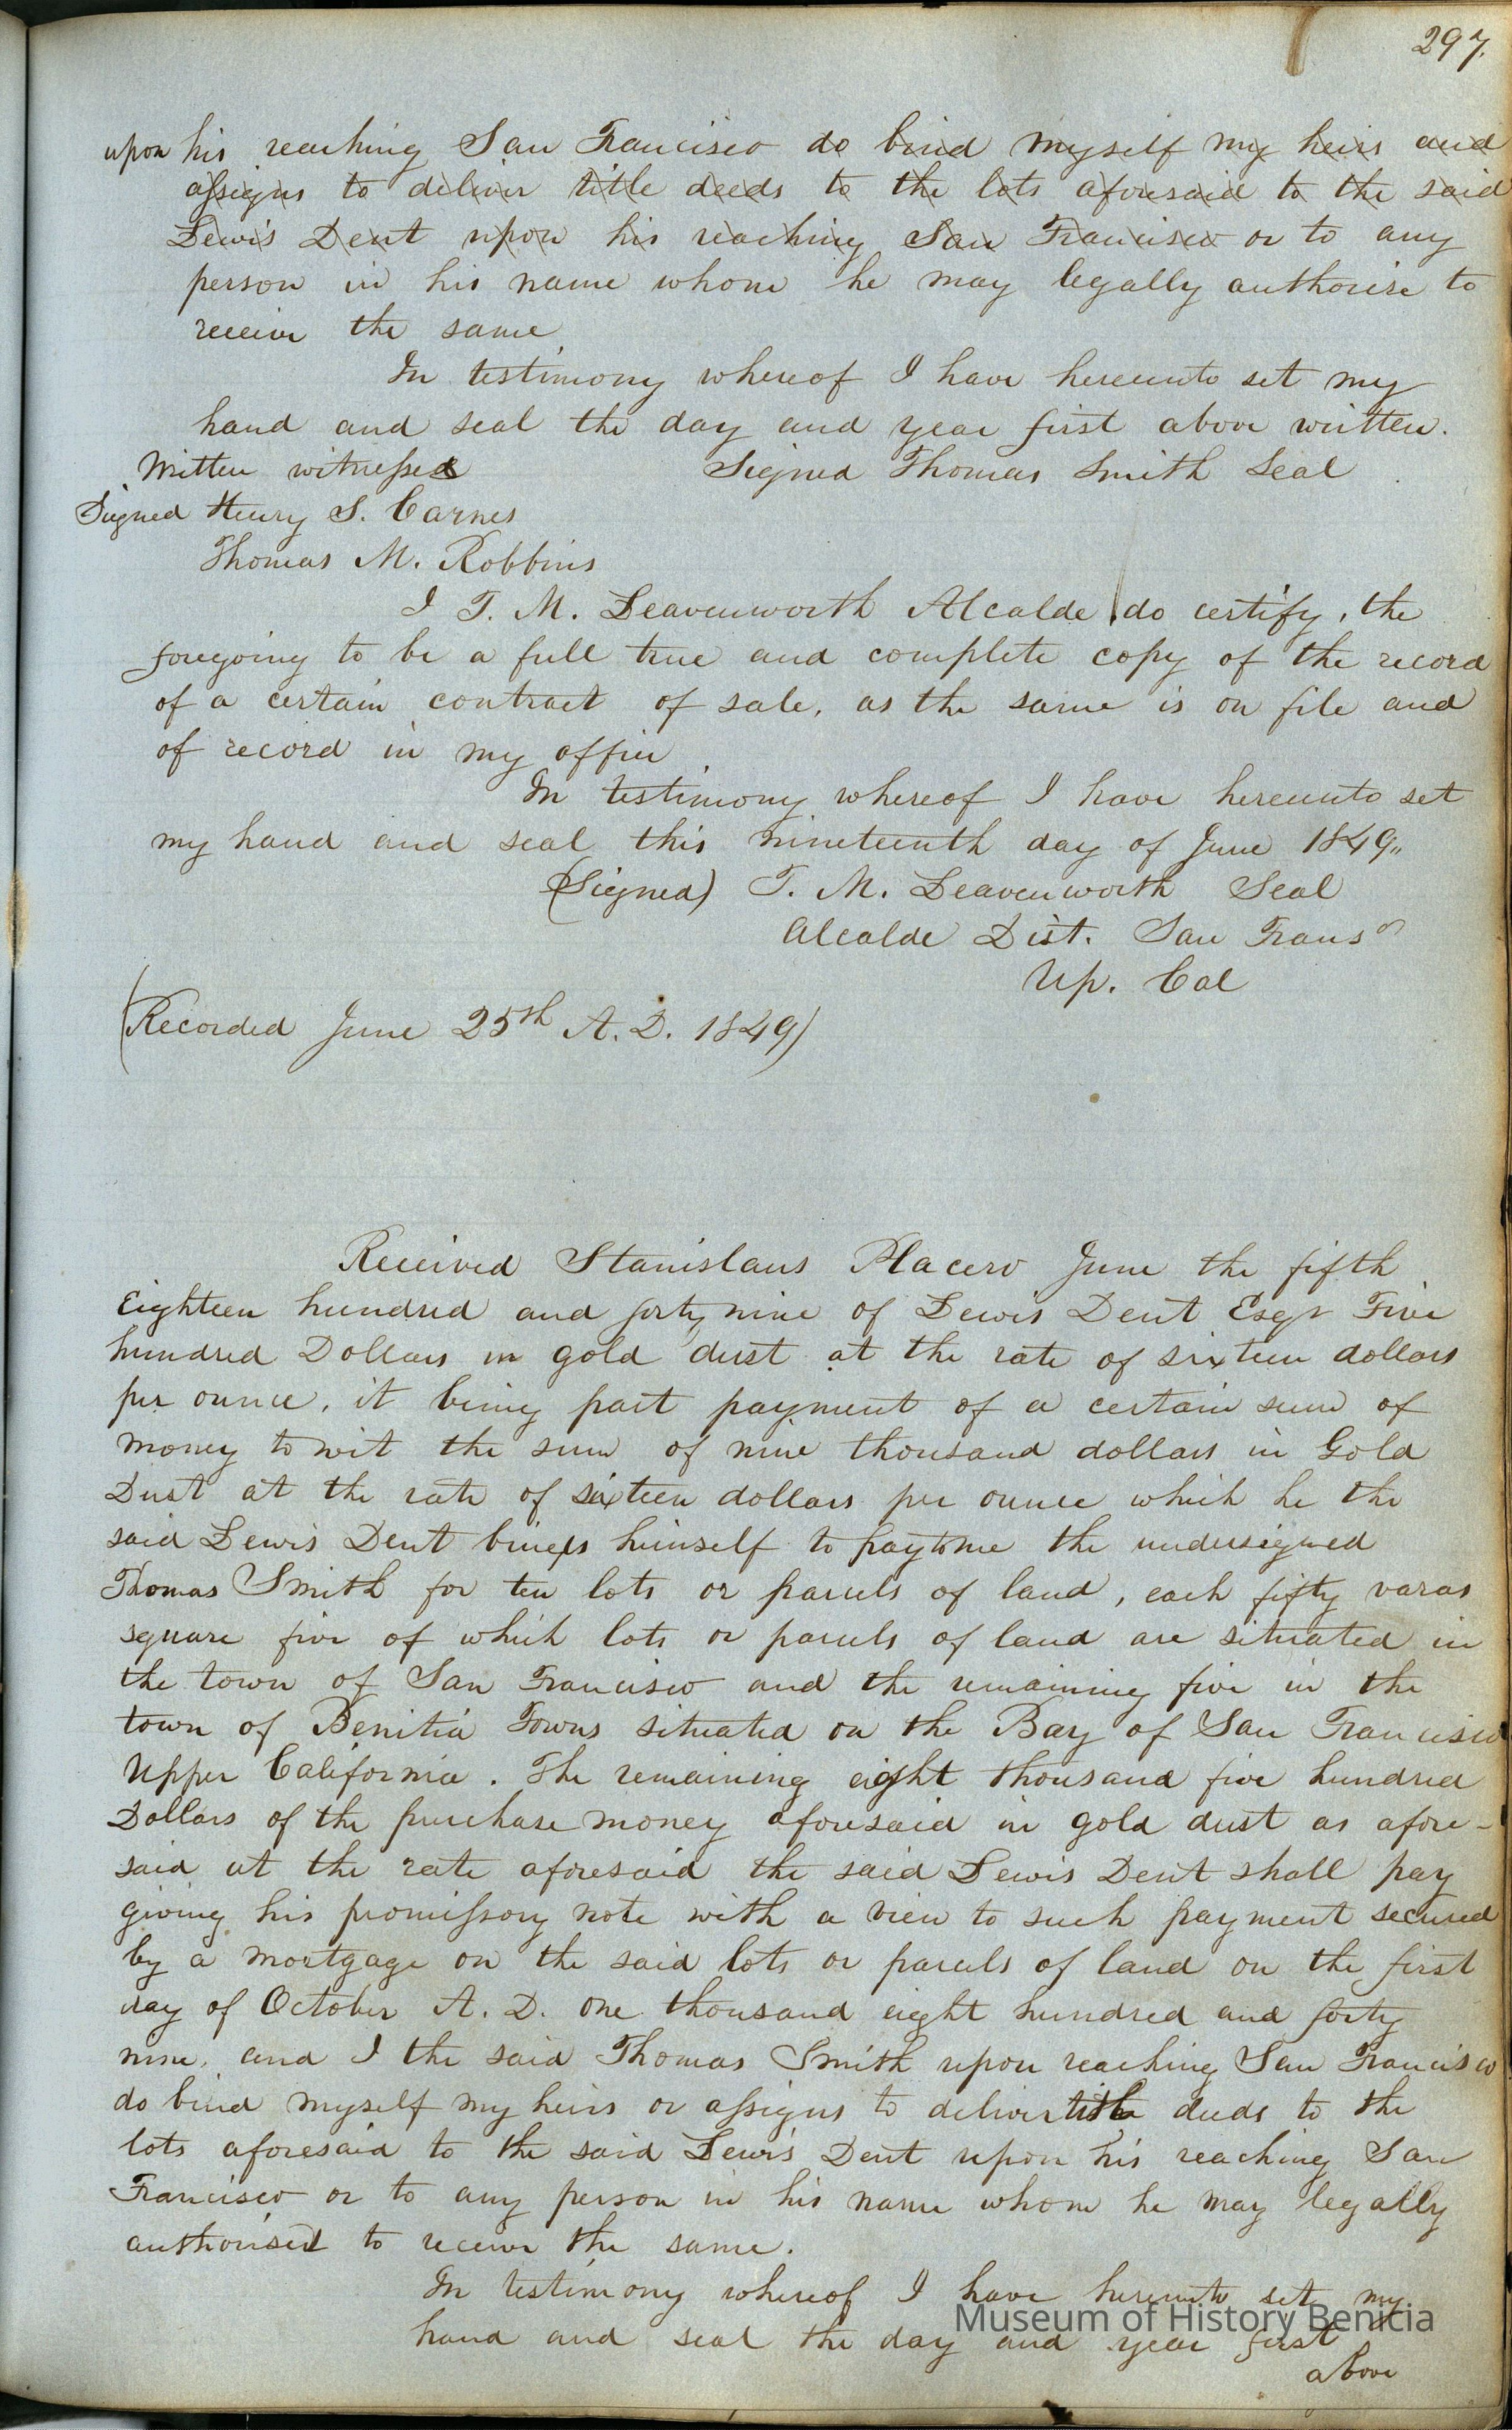 297.
upon his reaching San Francisco do bind myself my heirs and
assigns to deliver title deeds to the lots aforesaid to the said
Lewis Dent upon his reaching San Francisco or to any
person in his name whom he may legally authorise to
receive the same
In testimony whereof I have hereunto set my
hand and seal the day and year first above written.
Written witnesses Signed Thomas Smith Seal
Signed Henry S. Carnes
Thomas M. Robbins
I T. M. Leavenworth Alcalde do certify, the
foregoing to be a full true and complete copy of the record
of a certain contract of sale, as the same is on file and
of record in my office
In testimony whereof I have hereunto set
my hand and seal this nineteenth day of June 1849,,
(Signed) T. M. Leavenworth Seal
Alcalde Dist. San Frans co
Up. Cal
(Recorded June 25th A. D. 1849)
Received Stanislaus Placero June the fifth
Eighteen hundred and forty nine of Lewis Dent Esqr Five
hundred Dollars in gold dust at the rate of sixteen dollars
per ounce, it being part payment of a certain sum of
money to wit the sum of nine thousand dollars in Gold
Dust at the rate of sixteen dollars per ounce which he the
said Lewis Dent binds himself to pay to me the undersigned
Thomas Smith for ten lots or parcels of land, each fifty varas
square five of which lots or parcels of land are situated in
the town of San Francisco and the remaining five in the
town of Benitia Towns situated on the Bay of San Francisco
Upper California. The remaining eight thousand five hundred
Dollars of the purchase money aforesaid in gold dust as afore-
said at the rate aforesaid the said Lewis Dent shall pay
giving his promissory note with a view to such payment secured
by a mortgage on the said lots or parcels of land on the first
day of October A. D. one thousand eight hundred and forty
nine, and I the said Thomas Smith upon reaching San Francisco
do bind myself my heirs or assigns to deliver title deeds to the
lots aforesaid to the said Lewis Dent upon his reaching San
Francisco or to any person in his name whom he may legally
authorised to receive the same.
In testimony whereof I have hereunto set my
hand and seal the day and year first
above
Museum of History Benicia